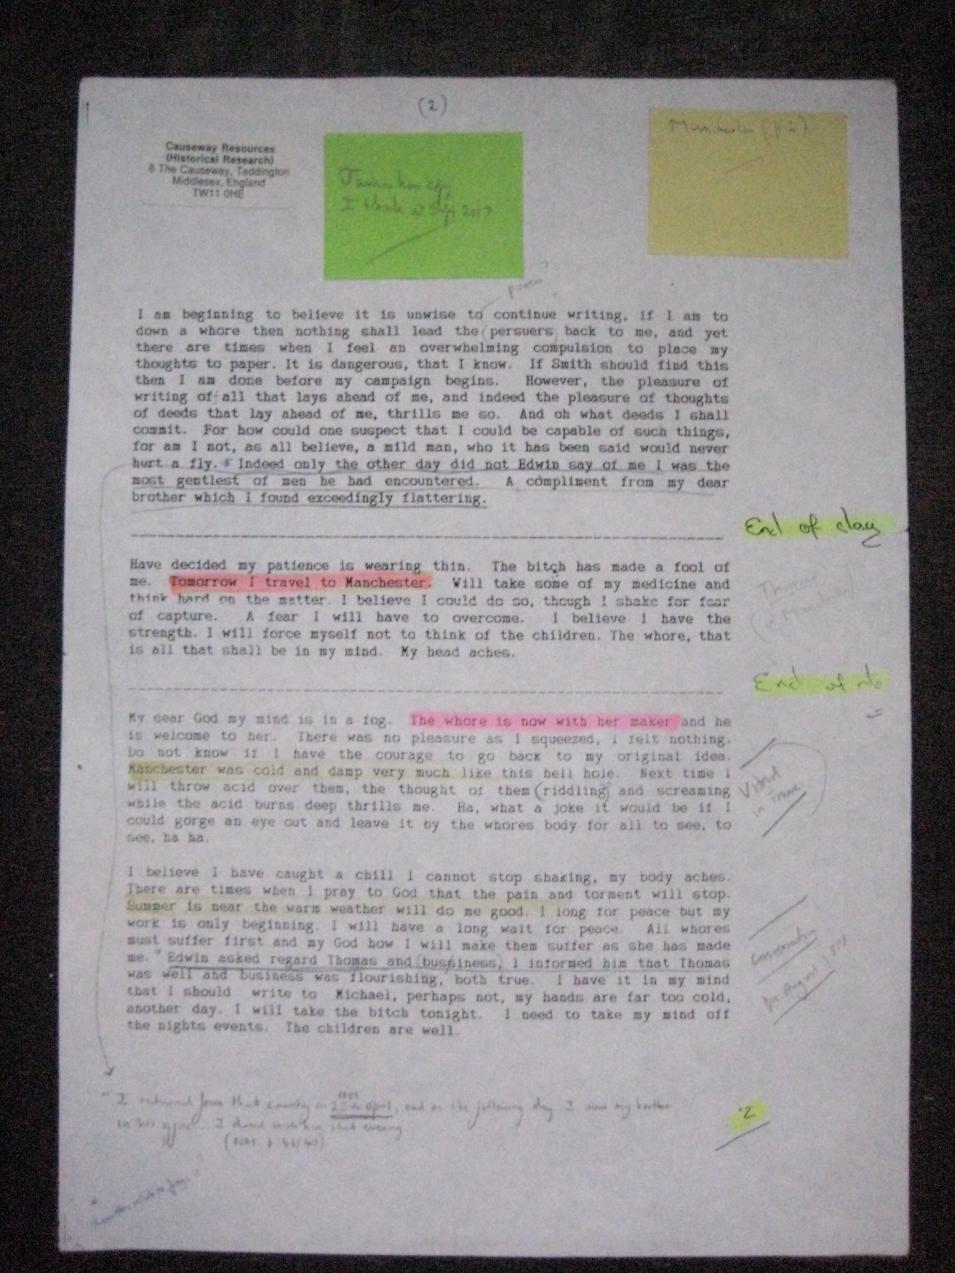 (2)
Causeway Resources
(Historical Research)
8 The Causeway, Teddington
Middlesex, England
TW11 0HE
I think 2 Sept 2017
I am beginning to believe it is unwise to continue writing, if I am to
down a whore then nothing shall lead the persuers back to me, and yet
there are times when I feel an overwhelming compulsion to place my
thoughts to paper. It is dangerous, that I know. If Smith should find this
then I am done before my campaign begins. However, the pleasure of
writing of all that lays ahead of me, and indeed the pleasure of thoughts
of deeds that lay ahead of me, thrills me so. And oh what deeds I shall
commit. For how could one suspect that I could be capable of such things,
for am I not, as all believe, a mild man, who it has been said would never
hurt a fly. Indeed only the other day did not Edwin say of me I was the
most gentlest of men he had encountered. A compliment from my dear
brother which I found exceedingly flattering.
End of day
Have decided my patience is wearing thin. The bitch has made a fool of
me. Tomorrow I travel to Manchester. Will take some of my medicine and
think hard on the matter. I believe I could do so, though I shake for fear
of capture. A fear I will have to overcome. I believe I have the
strength. I will force myself not to think of the children. The whore, that
is all that shall be in my mind. My head aches.
End of
My dear God my mind is in a fog. The whore is now with her maker and he
is welcome to her. There was no pleasure as I squeezed, i felt nothing.
Do not know if I have the courage to go back to my original idea.
Manchester was cold and damp very much like this hell hole. Next time I
will throw acid over them, the thought of them (riddling) and screaming
while the acid burns deep thrills me. Ha, what a joke it would be if I
could gorge an eye out and leave it by the whores body for all to see, to
see, ha ha.
I believe I have caught a chill I cannot stop shaking, my body aches.
There are times when I pray to God that the pain and torment will stop.
Summer is near the warm weather will do me good. I long for peace but my
work is only beginning. I will have a long wait for peace. All whores
must suffer first and my God how I will make them suffer as she has made
me. Edwin asked regard Thomas and buspiness, I informed him that Thomas
was well and business was flourishing, both true. I have it in my mind
that I should write to Michael, perhaps not, my hands are far too cold,
another day. I will take the bitch tonight. I need to take my mind off
the nights events. The children are well.
" I returned from that country on April, and on the following day I saw my brother
in his office... I dined with him that evening
2